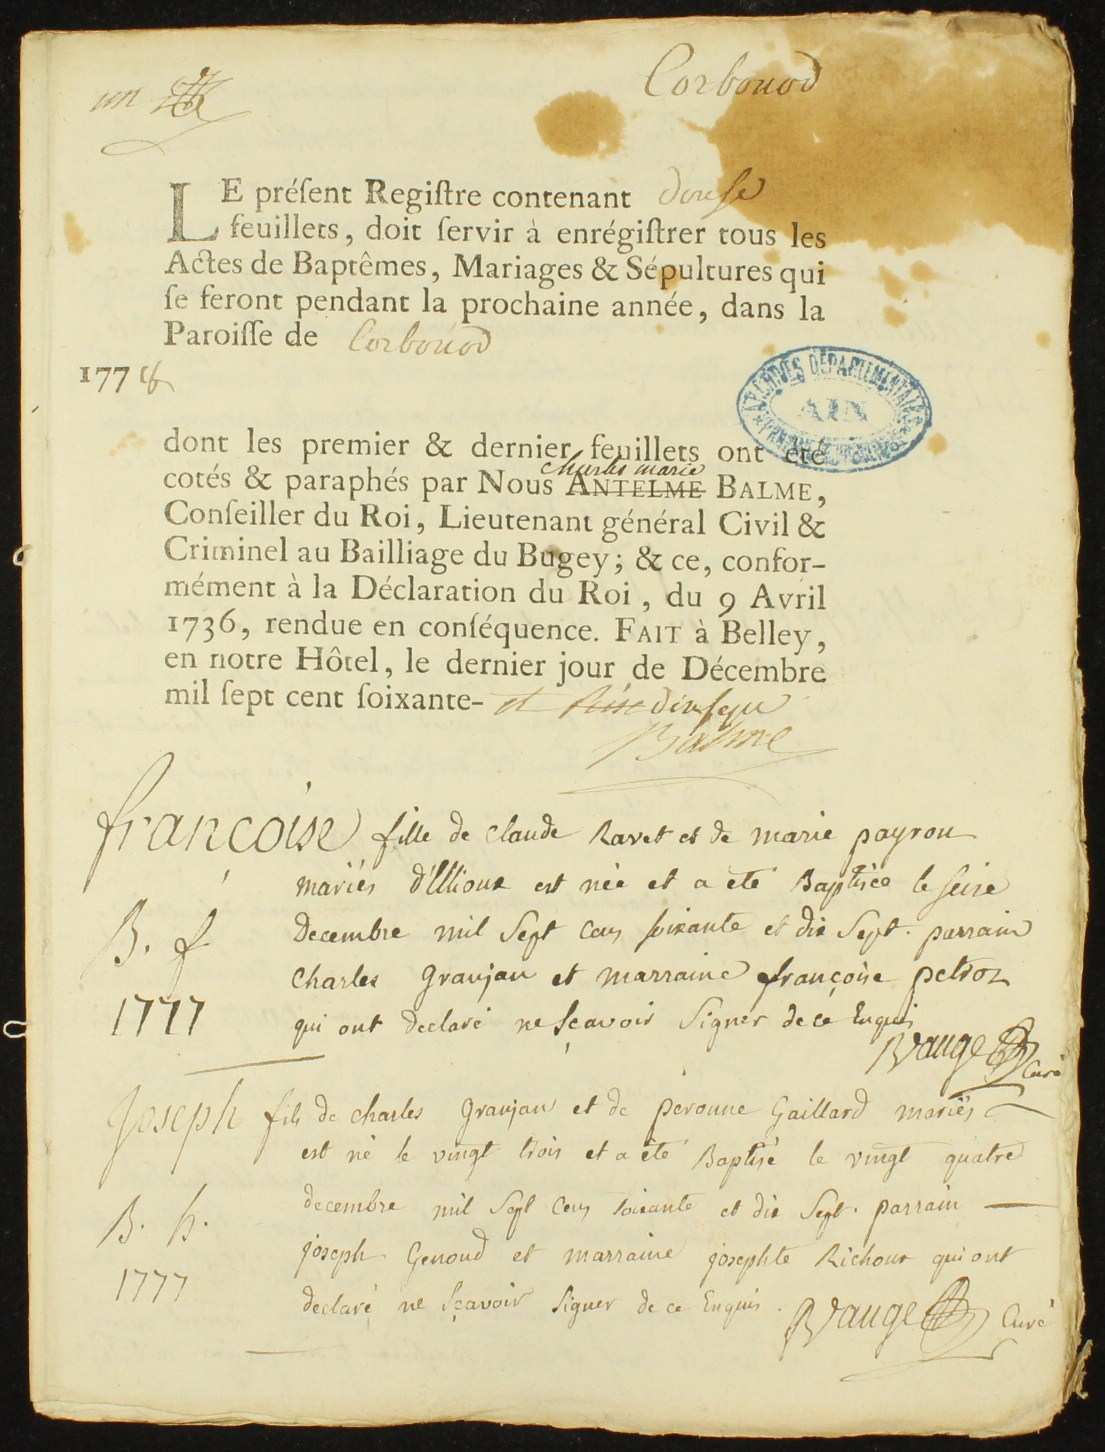 un
Corbonod
LE préſent Regiſtre contenant douſe
feuillets, doit ſervir à enrégiſtrer tous les
Actes de Baptêmes, Mariages & Sépultures qui
ſe feront pendant la prochaine année, dans la
Paroiſſe de Corbonod
177
ARCHIVES DÉPARTEMENTALES
AIN
dont les premier & dernier feuillets ont été
charles marie
cotés & paraphés par Nous ANTELME BALME,
Conſeiller du Roi, Lieutenant général Civil &
Criminel au Bailliage du Bugey; & ce, confor-
mément à la Déclaration du Roi, du 9 Avril
1736, rendue en conſéquence. FAIT à Belley,
en notre Hôtel, le dernier jour de Décembre
mil ſept cent ſoixante- et dixſept
Balme
francoise fille de claude Ravet et de marie payrou
mariés d'Ilioux est née et a eté Baptisée le seise
B. f. decembre mil Sept Cens soixante et dix Sept. parrain
charles granjan et marraine françoise petroz
1777 qui ont declaré ne sçavoir Signer de ce Enquis
Vauge Curé
Joseph fils de charles granjan et de peronne Gaillard mariés
est né le vingt trois et a été Baptisé le vingt quatre
decembre mil Sept Cens soixante et dix Sept. parrain
B. h.
joseph Genoud et marraine josephte Richoux qui ont
1777
declaré ne Sçavoir Signer de ce Enquis. Vauge Curé